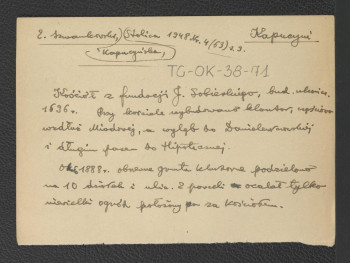 E. Szwankowski, (Stolica 1948 Nr. 4 (63) s 3. Kapucyni
"Kapucyńska,
TO-OK-38-71
Kościół z fundacji J. Sobieskiego, bud. ukończ.
1696 r. Przy kościele wybudowano klasztor,
wzdłuż Miodowej, a w głąb do Danielewiczowskiej
i długim pasem do Hipotecznej.
Ok 1888 r. obszerne grunta klasztorne podzielono
na 10 działek i ulic. Z posesji ocalał tylko
niewielki ogród położony za Kościołem.